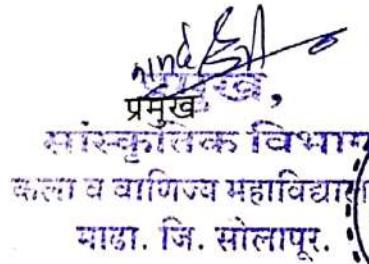 प्रमुख
प्रमुख,
सांस्कृतिक विभाग
कला व वाणिज्य महाविद्यालय
माढा. जि. सोलापूर.